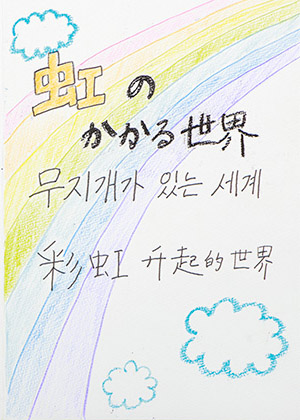 虹の
かかる世界
무지개가 있는 세계
彩虹 升起的世界